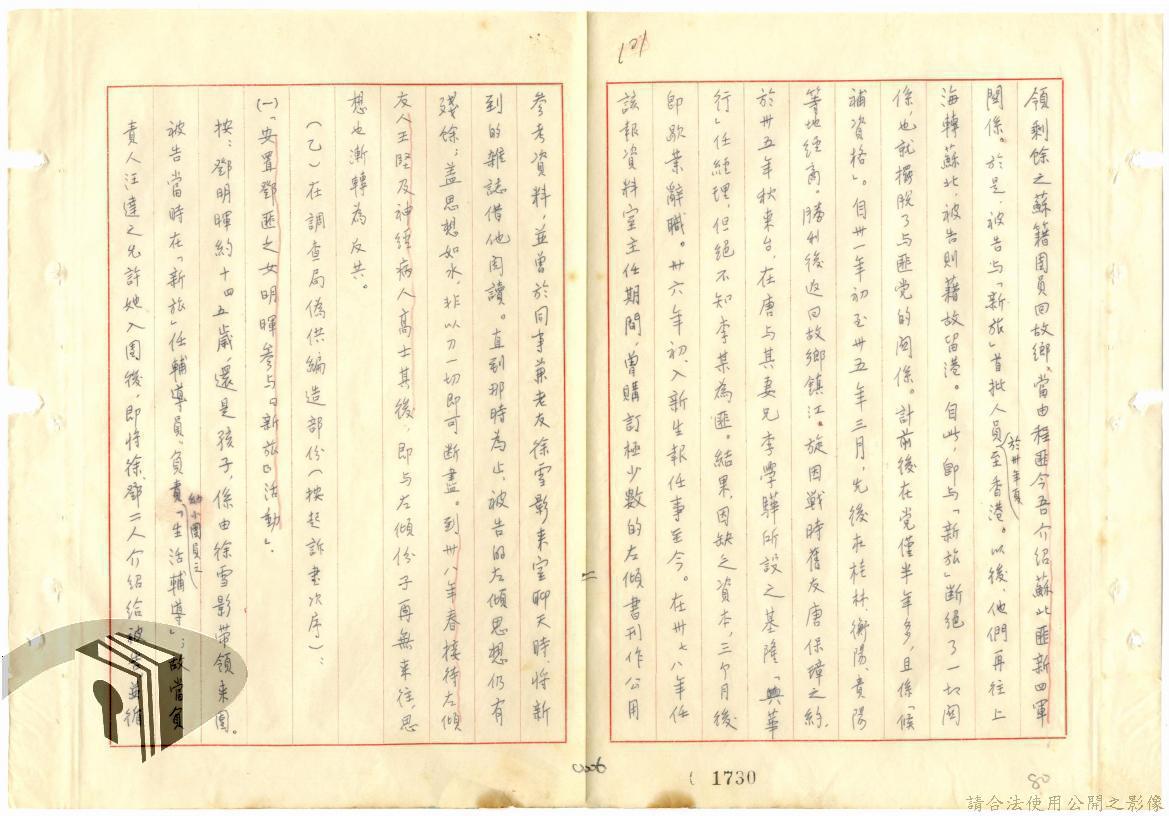 領剩餘之蘇籍團員回故鄉,當由程匪今吾介紹蘇北匪新四軍
関係。於是,被告与「新旅」首批人員於卅年夏至香港。以後,他們再往上
海轉蘇北,被告則藉故留港。自此,即与「新旅」断絕了一切関
係,也就擺脫了与匪党的関係。計前後在党僅半年多,且係「候
補資格」。自卅一年初至卅五年三月,先後在桂林、衡陽、貴陽
等地經商。勝利後返回故鄉鎮江。旋因戰時舊友唐保璋之約,
於卅五年秋來台,在唐与其妻兄李學驊所設之基隆「興華
行」任經理,但絕不知李某為匪。結果,因缺乏資本,三个月後
即歇業辭職。卅六年初,入新生報任事至今。在卅七八年任
該報資料室主任期間,曾購訂極少數的左傾書刊作公用
參考資料,並曾於同事兼老友徐雪影來室聊天時,將新
到的雜誌借他閱讀。直到那時為止,被告的左傾思想仍有
殘餘;蓋思想如水,非以刀一切即可断盡。到卅八年春接待左傾
友人王堅及神經病人高士其後,即与左傾份子再無來往,思
想也漸轉為反共。
(乙)在調查局偽供編造部份(按起訴書次序):
(一)「安置鄧匪之女明暉參与『新旅』活動」.
按:鄧明暉約十四五歲,還是孩子,係由徐雪影帶領來團。
被告當時在「新旅」任輔導員,負責幼小團員之「生活輔導」;故當負
責人汪達之允許她入團後,即將徐、鄧二人介紹給被告並循
121
二
1730
80
請合法使用公開之影像